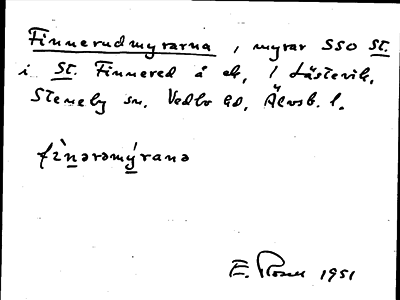 Finnerudmyrarna, myrar SSO St.
i St. Finnered å ek, 1 Lästerik,
Steneby sn. Vedbo hd, Älvsb. l.
fìnərəmýranə
E. Rosell 1951